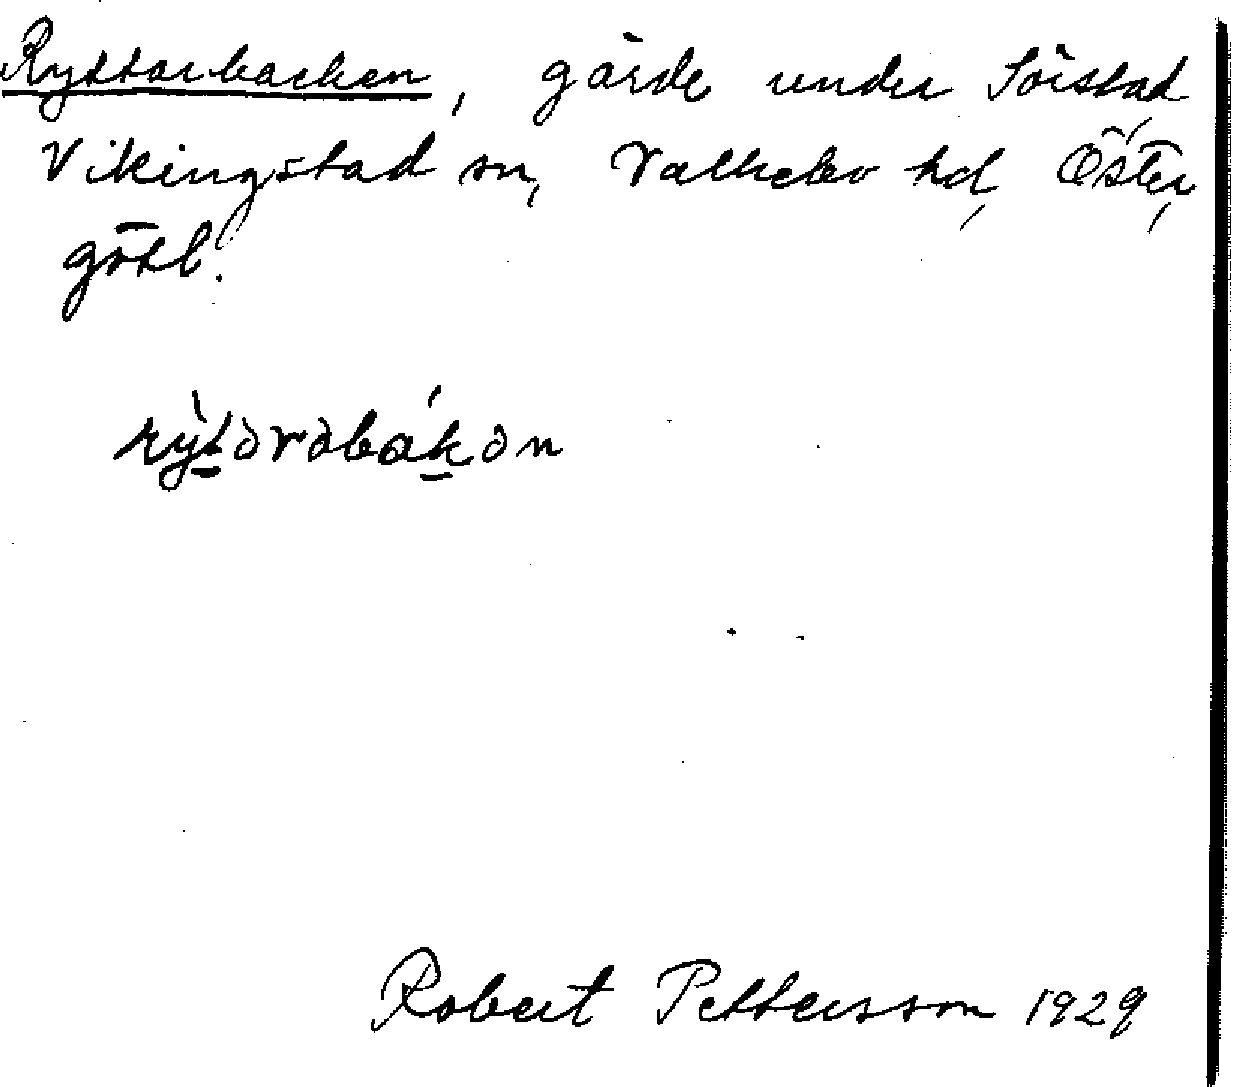 Ryttarbacken, gärde under Sörstad
Vikingstad sn, Valkebo hd, Öster
götl.
rỳtərəbákən
Robert Pettersson 1929